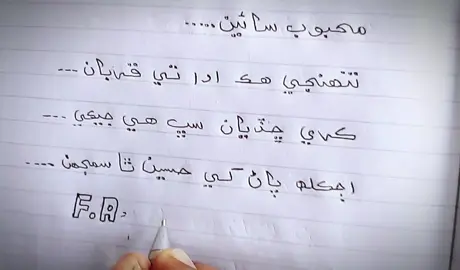 محبوب سائين.....
تنهنجي هڪ ادا تي قربان...
ڪري ڇڏيان سڀ هي جيڪي...
اڄڪلهه پاڻ کي حسين ٿا سمجهن....
F.A.